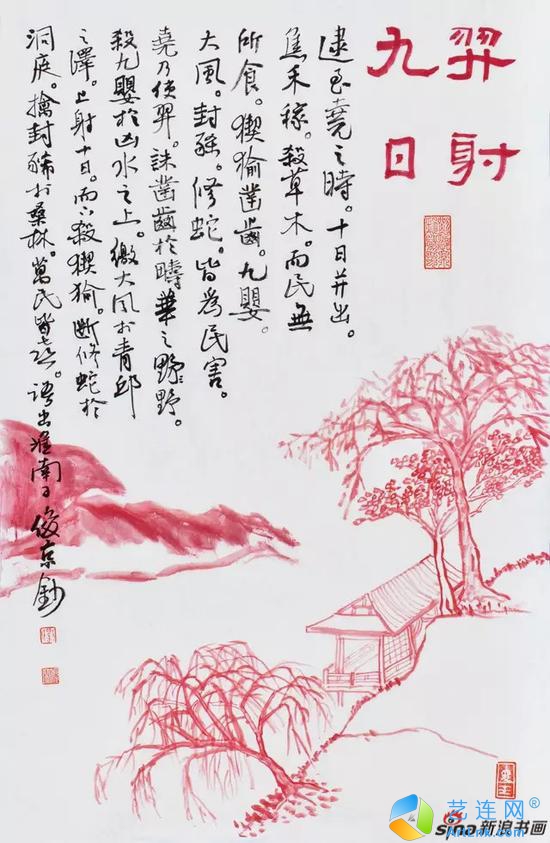 羿射
九日
逮至堯之時。十日并出。
焦禾稼。殺草木。而民無
所食。猰貐鑿齒。九嬰。
大風。封豨。修蛇。皆為民害。
堯乃使羿。誅鑿齒於疇華之野野。
殺九嬰於凶水之上。繳大風於青邱
之澤。上射十日。而下殺猰貐。斷修蛇於
洞庭。擒封豨於桑林。萬民皆喜。語出淮南子 俊京鈔
艺连网
sina新浪书画